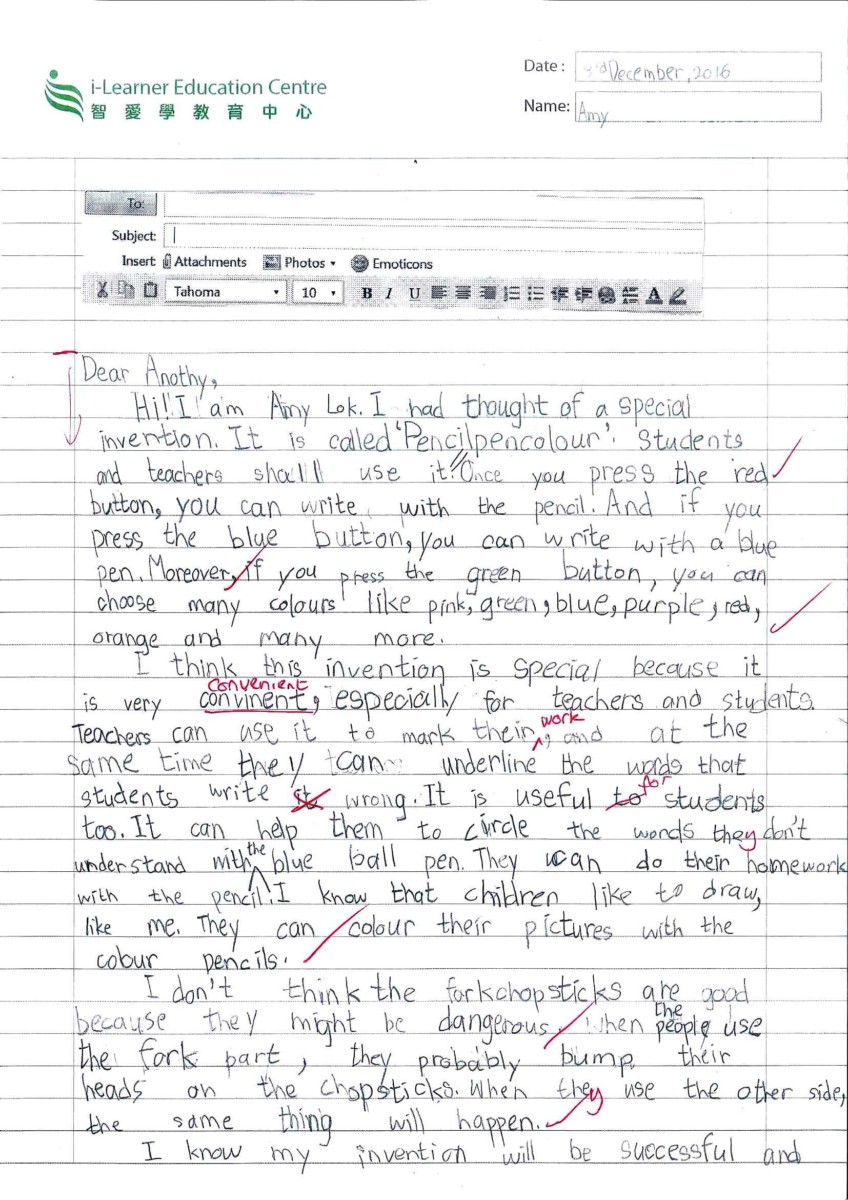 i-Learner Education Centre
智愛學教育中心
Date: 3rd December, 2016
Name: Amy
To:
Subject:
Insert: Attachments Photos Emoticons
Tahoma 10 B I U A
Dear Anothy,
Hi! I am Amy Lok. I had thought of a special
invention. It is called 'Pencilpencolour'. Students
and teachers shall use it. Once you press the red
button, you can write with the pencil. And if you
press the blue button, you can write with a blue
pen. Moreover, if you press the green button, you can
choose many colours like pink, green, blue, purple, red,
orange and many more.
I think this invention is special because it
convenient
is very convinent, especially for teachers and students.
work
Teachers can use it to mark their, and at the
same time they can underline the words that
for
students write it wrong. It is useful to students
too. It can help them to circle the words they don't
the
understand with blue ball pen. They can do their homework
with the pencil. I know that children like to draw,
like me. They can colour their pictures with the
colour pencils.
I don't think the forkchopsticks are good
the
because they might be dangerous. When people use
the fork part, they probably bump their
heads on the chopsticks. When they use the other side,
the same thing will happen.
I know my invention will be successful and